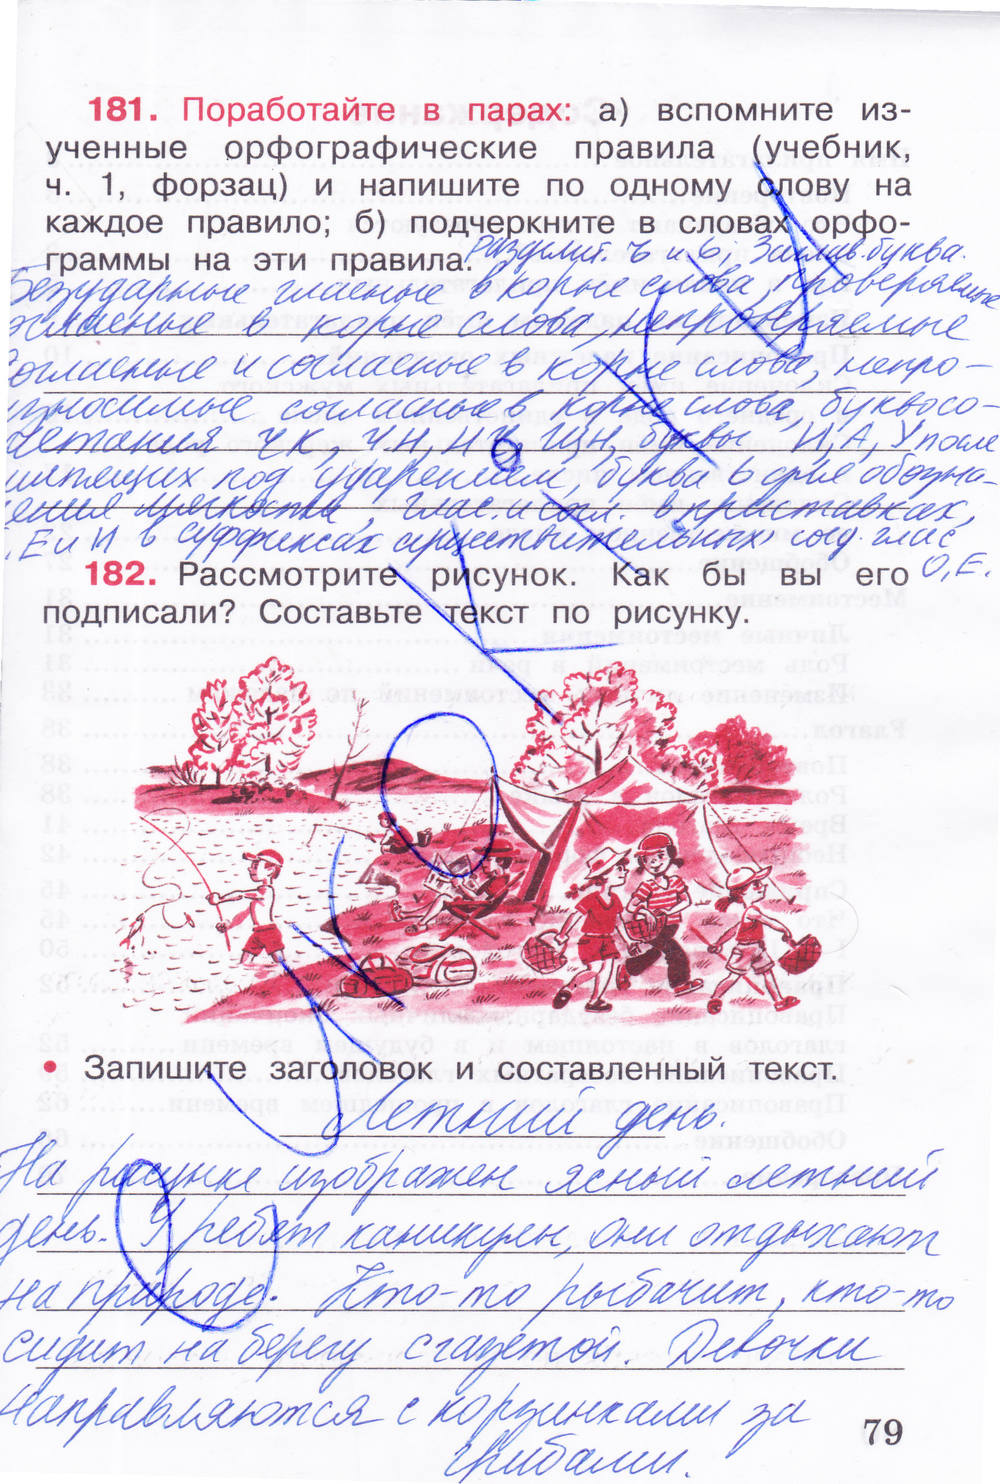 181. Поработайте в парах: а) вспомните из-
ученные орфографические правила (учебник,
ч. 1, форзац) и напишите по одному слову на
каждое правило; б) подчеркните в словах орфо-
граммы на эти правила.
Раздулит. Ъ и Ь. Заглав. буква.
Безударные гласные в корне слова, проверяемые
гласные в корне слова непроверяемые
согласные и согласные в корне слова, непро-
износимые согласные в корне слова, буквосо-
четания чк, чн, щн, буквы И, А, У после
шипящих под ударением, буква ь для обозна-
чения мягкости, глас. и согл. в приставках,
Е и И в суффиксах существительных, соед. глас
О, Е.
182. Рассмотрите рисунок. Как бы вы его
подписали? Составьте текст по рисунку.
• Запишите заголовок и составленный текст.
Летний день.
На рисунке изображен ясный летний
день. У ребят каникулы, они отдыхают
на природе. Кто-то рыбачит, кто-то
сидит на берегу с газетой. Девочки
направляются с корзинками за
грибами.
79